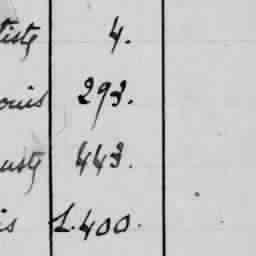 tiste 4.
ouis 293.
uste 443.
is 1.400.